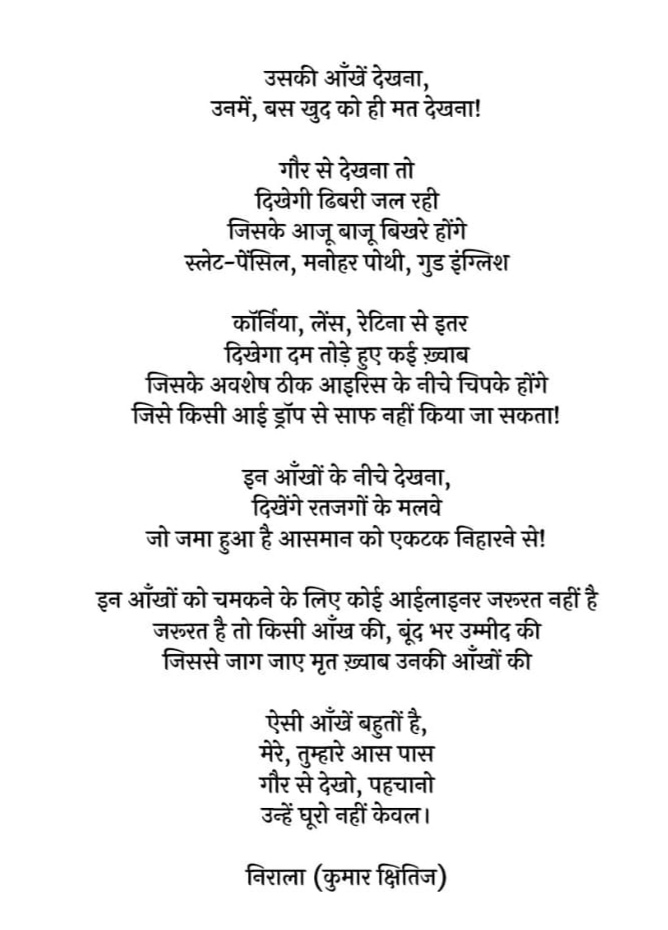 उसकी आँखें देखना,
उनमें, बस खुद को ही मत देखना!
गौर से देखना तो
दिखेगी ढिबरी जल रही
जिसके आजू बाजू बिखरे होंगे
स्लेट-पेंसिल, मनोहर पोथी, गुड इंग्लिश
कॉर्निया, लेंस, रेटिना से इतर
दिखेगा दम तोड़े हुए कई ख़्वाब
जिसके अवशेष ठीक आइरिस के नीचे चिपके होंगे
जिसे किसी आई ड्रॉप से साफ नहीं किया जा सकता!
इन आँखों के नीचे देखना,
दिखेंगे रतजगों के मलवे
जो जमा हुआ है आसमान को एकटक निहारने से!
इन आँखों को चमकने के लिए कोई आईलाइनर जरूरत नहीं है
जरूरत है तो किसी आँख की, बूंद भर उम्मीद की
जिससे जाग जाए मृत ख़्वाब उनकी आँखों की
ऐसी आँखें बहुतों है,
मेरे, तुम्हारे आस पास
गौर से देखो, पहचानो
उन्हें घूरो नहीं केवल।
निराला (कुमार क्षितिज)